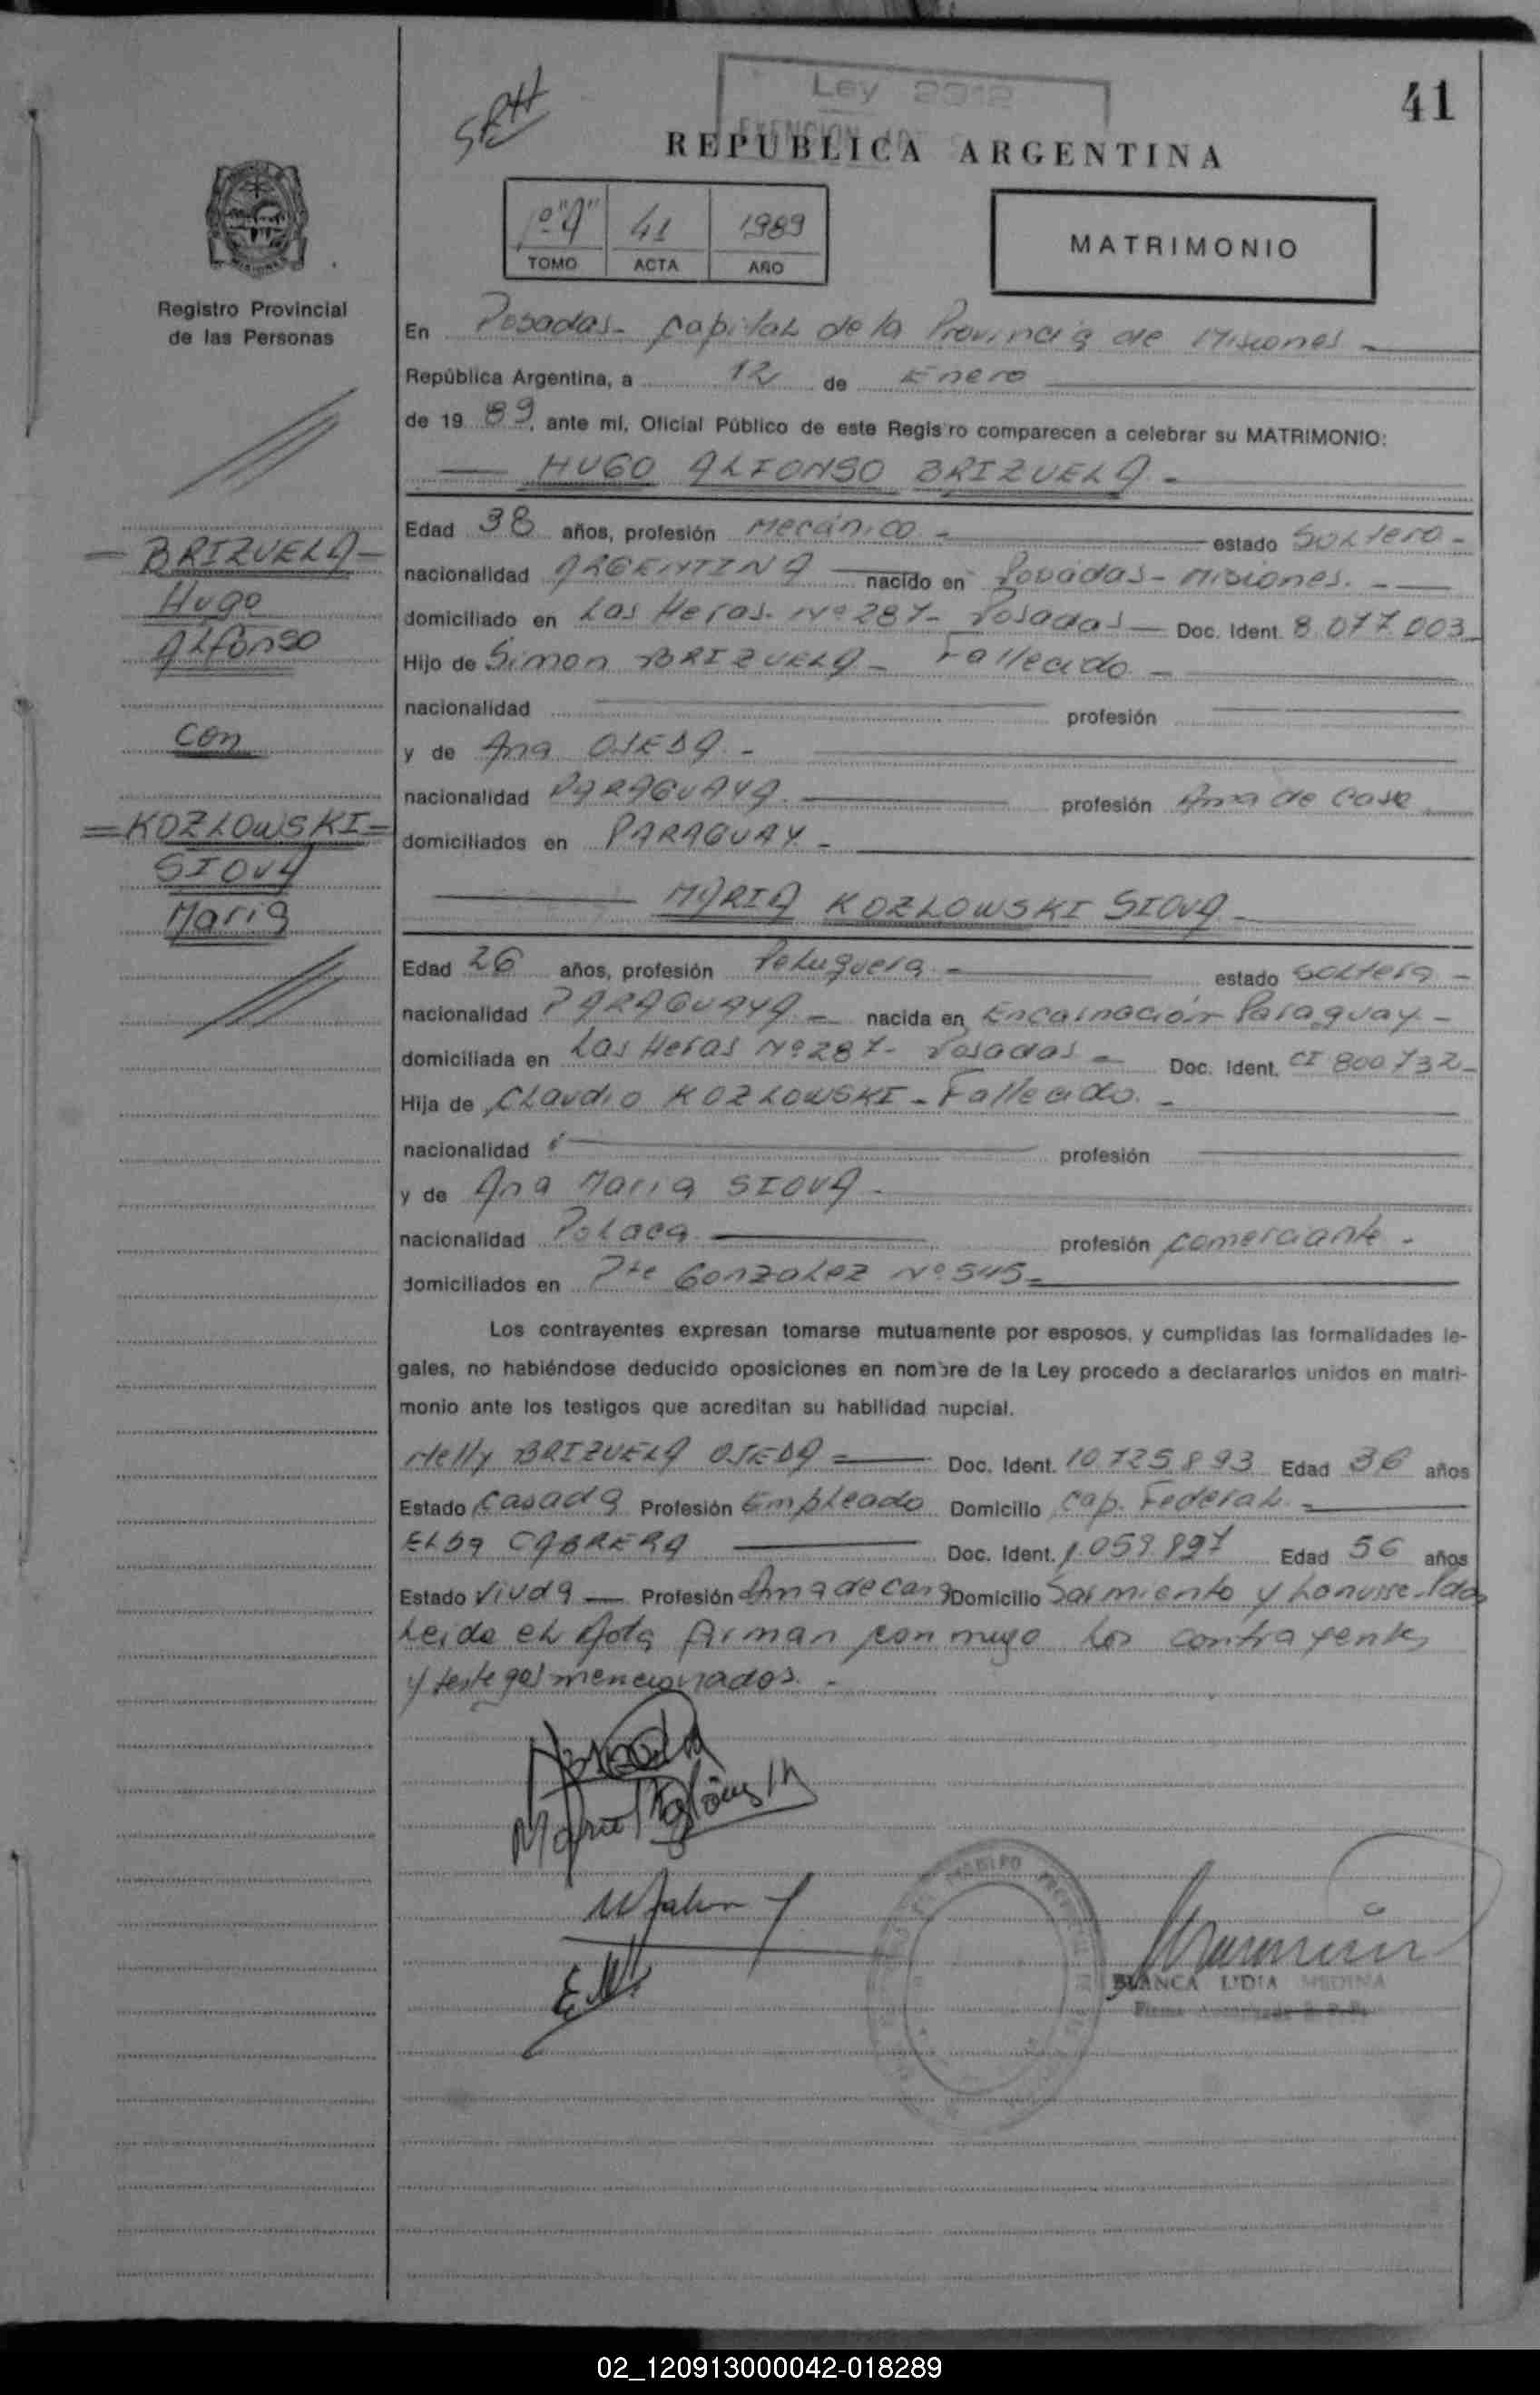 Ley 2912
EXENCION
41
SRH
REPUBLICA ARGENTINA
1º "A" 41 1989
TOMO ACTA AÑO
MATRIMONIO
Registro Provincial
de las Personas
En Posadas - Capital de la Provincia de Misiones
República Argentina, a 12 de Enero
de 1989, ante mí, Oficial Público de este Registro comparecen a celebrar su MATRIMONIO:
HUGO ALFONSO BRIZUELA -
Edad 38 años, profesión Mecánico - estado Soltero -
nacionalidad ARGENTINA nacido en Posadas - Misiones. -
domiciliado en Las Heras Nº 287 - Posadas - Doc. Ident. 8.077.003
Hijo de Simon BRIZUELA - Fallecido -
nacionalidad profesión
y de Ana OJEDA -
nacionalidad PARAGUAYA profesión Ama de Casa
domiciliados en PARAGUAY -
- BRIZUELA -
Hugo
Alfonso
con
= KOZLOWSKI =
SIOVA
Maria
MARIA KOZLOWSKI SIOVA -
Edad 26 años, profesión Peluquera - estado Soltera -
nacionalidad PARAGUAYA - nacida en Encarnación - Paraguay -
domiciliada en Las Heras Nº 287 - Posadas - Doc. Ident. CI 800732 -
Hija de Claudio KOZLOWSKI - Fallecido. -
nacionalidad profesión
y de Ana Maria SIOVA -
nacionalidad Polaca profesión comerciante -
domiciliados en Pte Gonzalez Nº 545 -
Los contrayentes expresan tomarse mutuamente por esposos, y cumplidas las formalidades le-
gales, no habiéndose deducido oposiciones en nombre de la Ley procedo a declararlos unidos en matri-
monio ante los testigos que acreditan su habilidad nupcial.
Nelly BRIZUELA OJEDA = Doc. Ident. 10.725.893 Edad 36 años
Estado Casada Profesión Empleado Domicilio Cap. Federal -
Elba CABRERA Doc. Ident. 1.059.897 Edad 56 años
Estado Viuda - Profesión Ama de casa Domicilio Sarmiento y Lanusse - Pdas
Leida el Acta firman conmigo los contrayentes
y testigos mencionados. -
BLANCA LIDIA MEDINA
Firma Autorizada R. P. P.
02_120913000042-018289